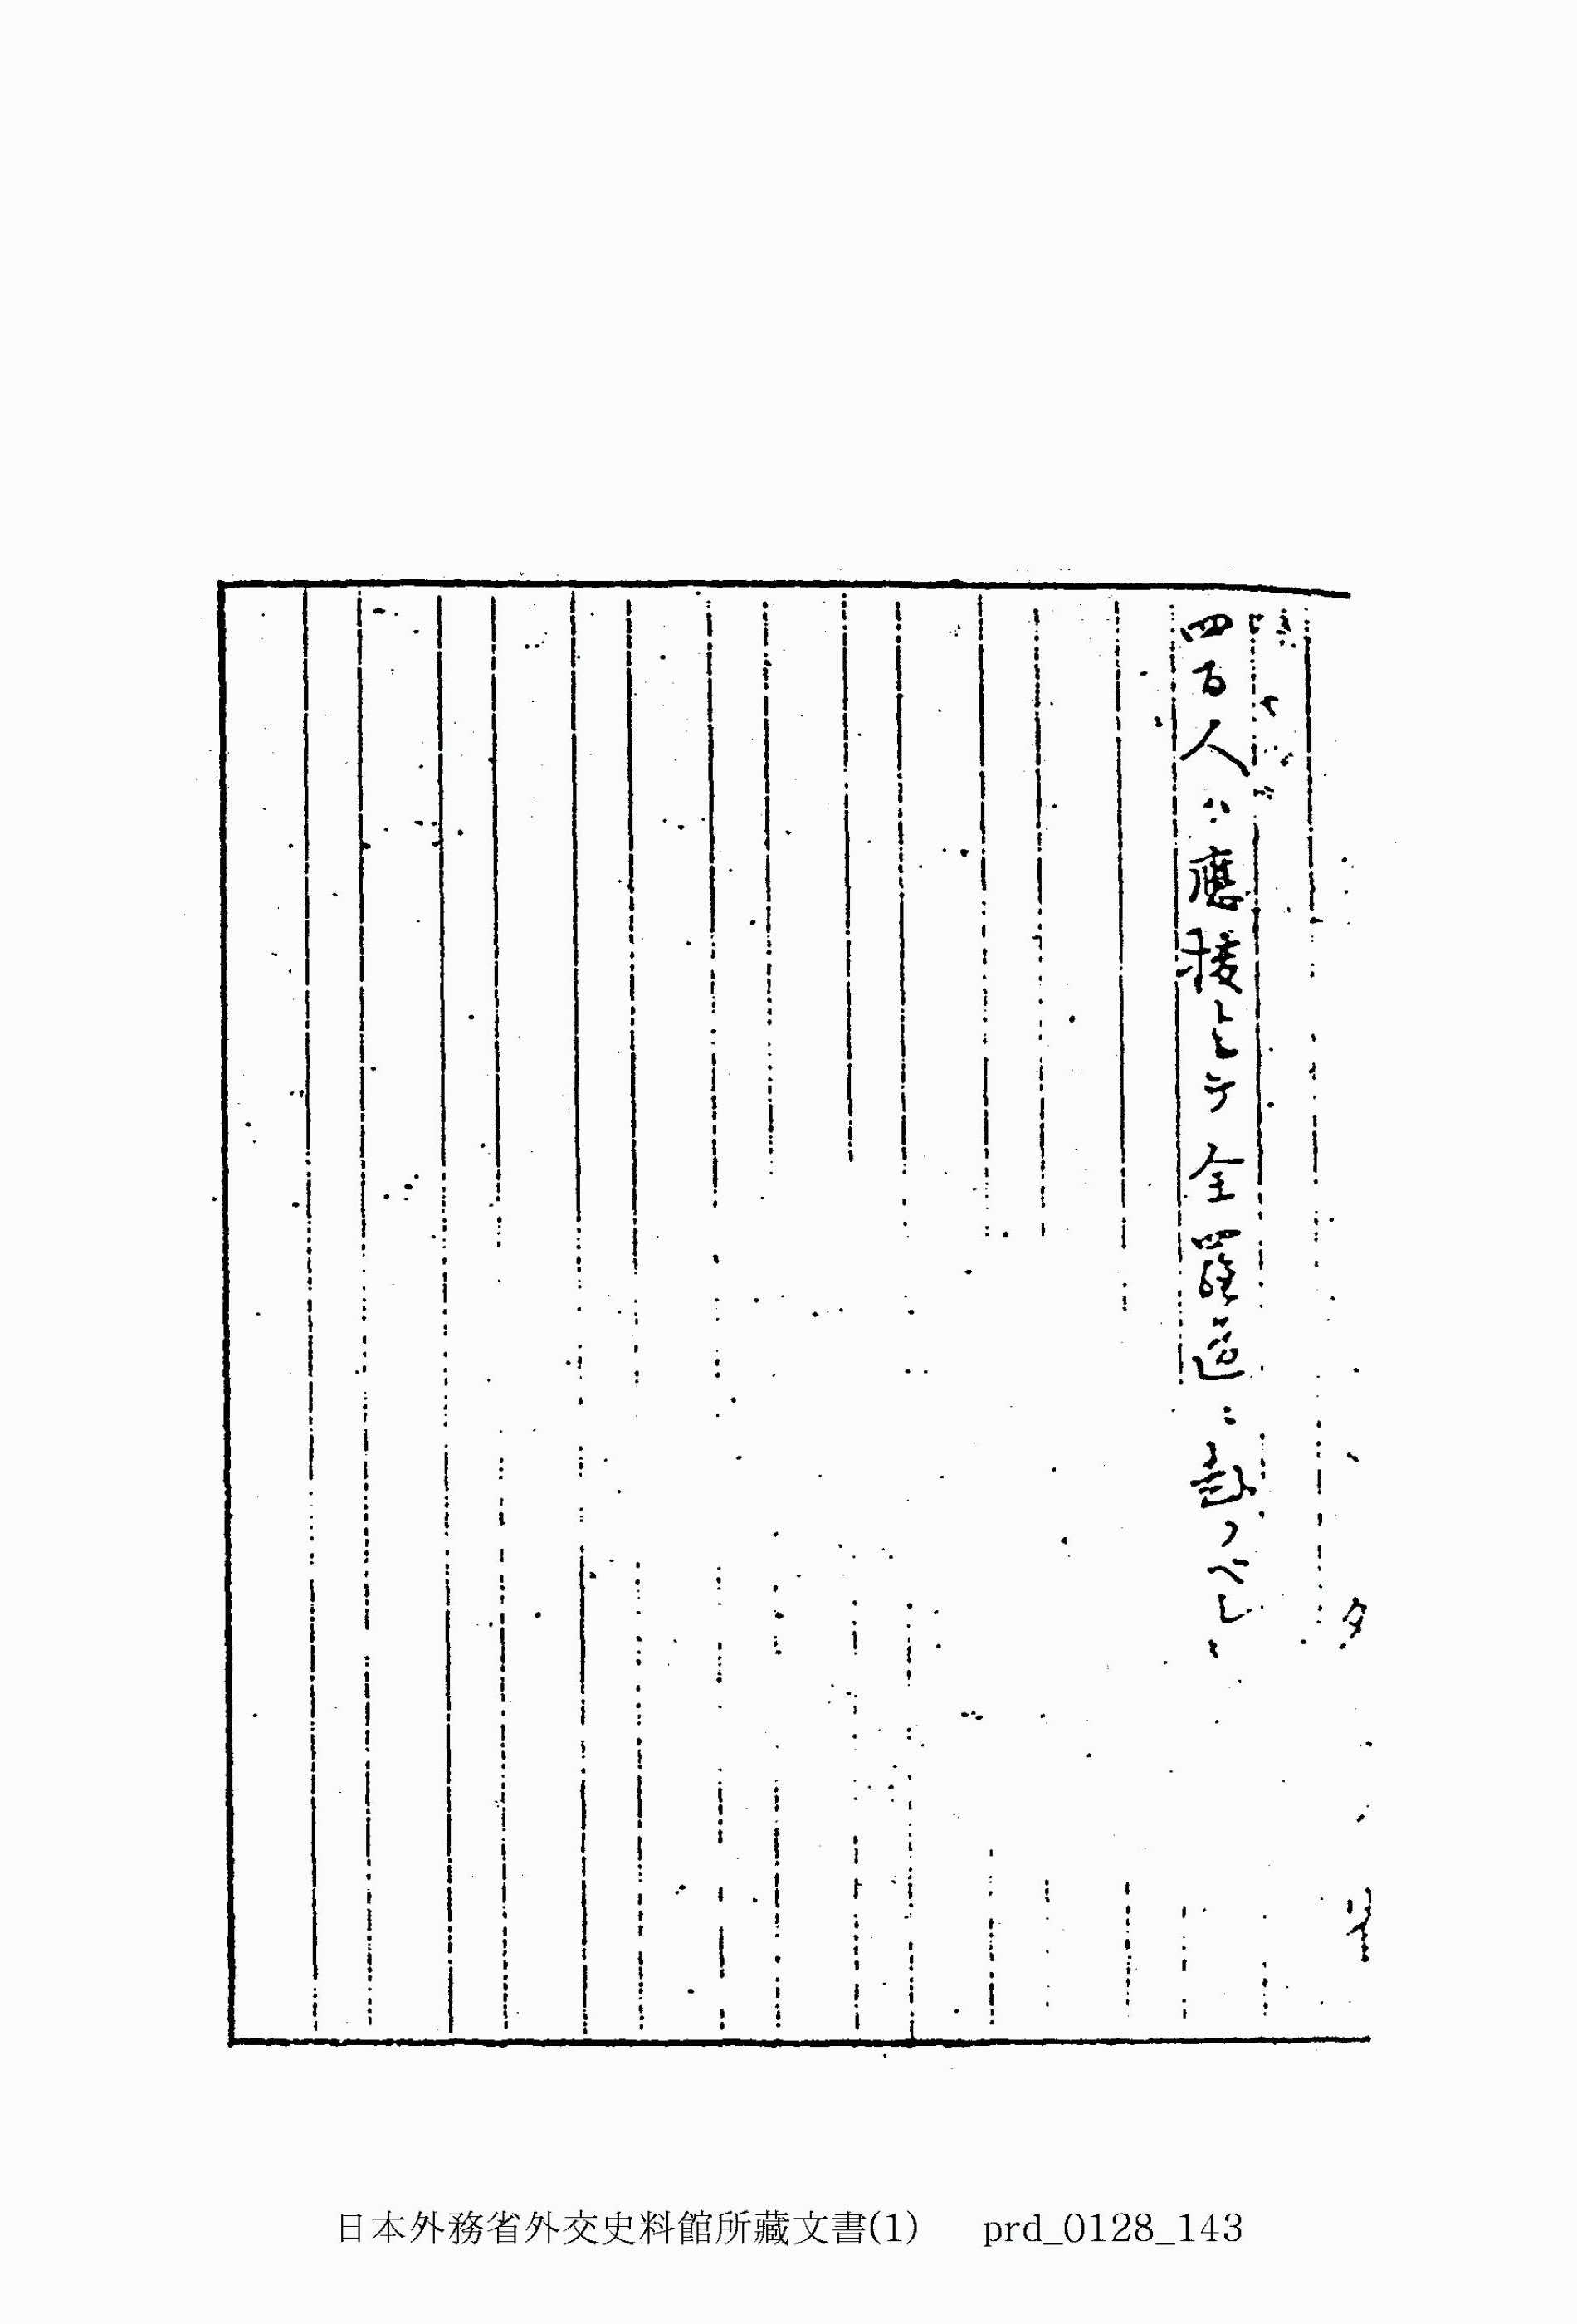 四百人ハ應援トシテ全羅道ニ赴クベシ
日本外務省外交史料館所藏文書(1) prd_0128_143